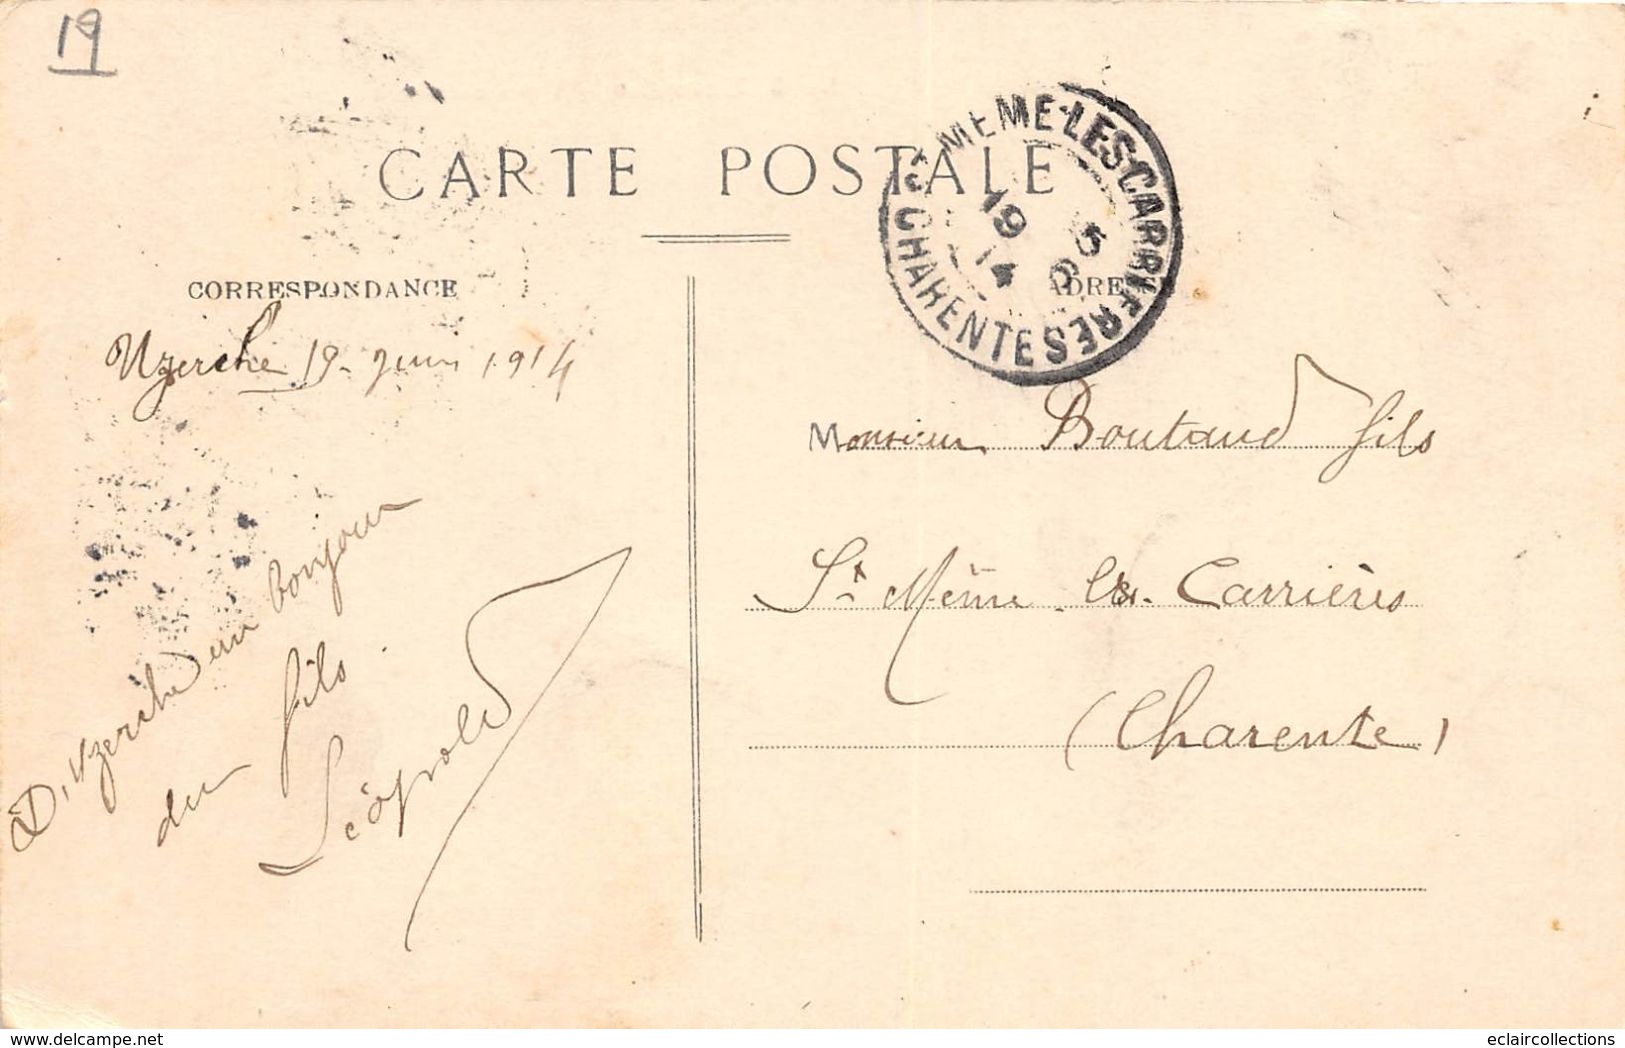 19
CARTE POSTALE
ST MEME-LES-CARRIERES
CHARENTE
19
14
CORRESPONDANCE
ADRESSE
Uzerche 19 Juin 1914
Monsieur Boutaud fils
St Même les Carrières
(Charente)
D'Uzerche un bonjour
du fils
Léopold
eclaircollections